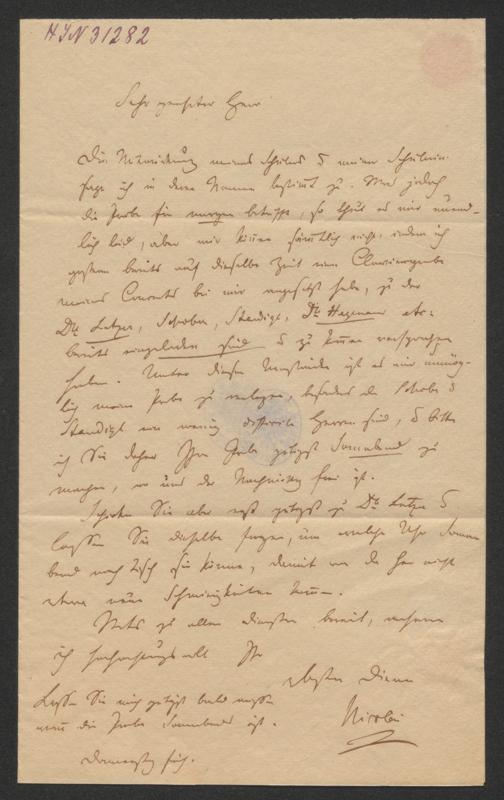 HJN 31282
Sehr geehrter Herr
Die Mitwirkung meines Schülers & meiner Schülerin
sage ich in deren Namen bestimt zu. Was jedoch
die Probe für morgen betrifft, so thut es mir unend-
lich leid, aber wir können sämtlich nicht, indem ich
gestern bereits auf dieselbe Zeit eine Clavierprobe
meines Concerts bei mir angesetzt habe, zu der
Dlle Lutzer, Schober, Staudigl, Dlle Hagemann etc:
bereits eingeladen sind & zu kommen versprochen
haben. Unter diesen Umständen ist es mir unmög-
lich meine Probe zu verlegen, besonders da Schober &
Staudigl ein wenig difficile Herren sind, & bitte
ich Sie daher Ihre Probe gütigst Sonnabend zu
machen, wo uns der Nachmittag frei ist.
Schicken Sie aber erst gütigst zu Dlle Lutzer &
lassen Sie dieselbe fragen, um welche Uhr Sonna
bend nach Tisch sie könne, damit wir da hier nicht
etwa neue Schwierigkeiten kommen.
Stets zu allen Diensten bereit, verharre
ich hochachtungsvoll Ihr
Diener
Nicolai
Lassen Sie mich gütigst bald wissen
wann die Probe Sonnabend ist.
Donnerstag früh.